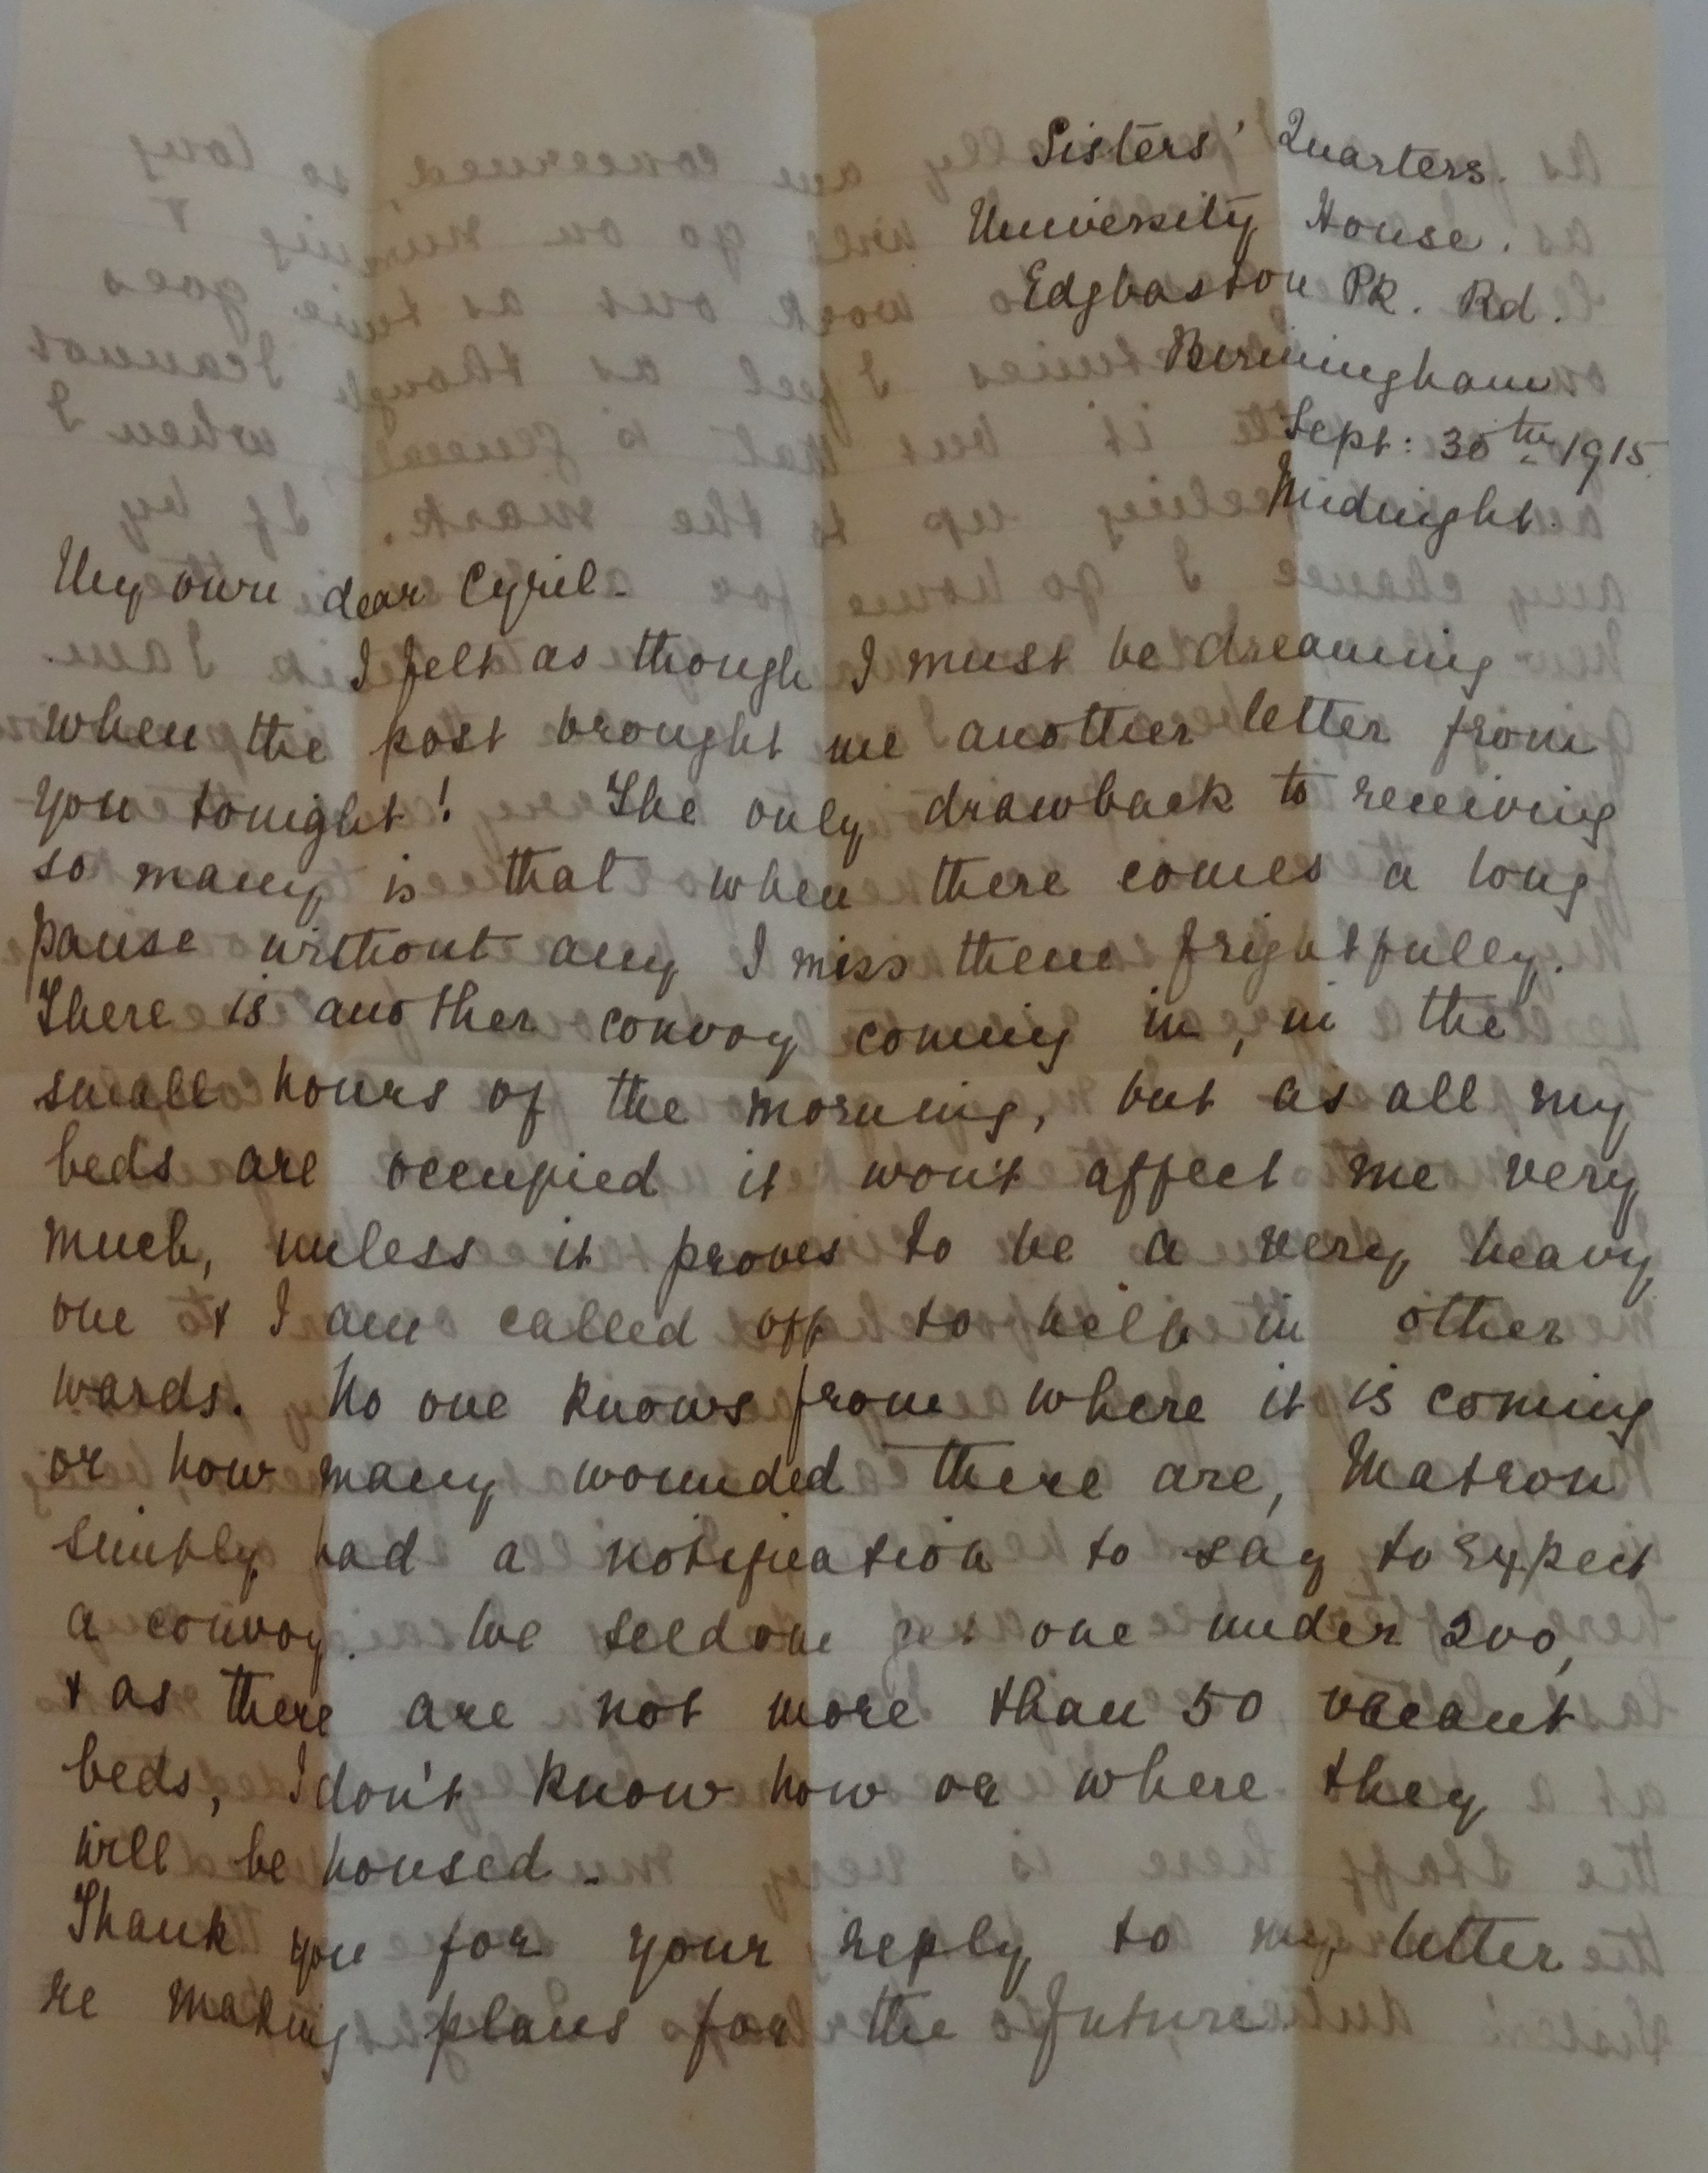 Sisters' Quarters.
University House.
Edgbaston Pk. Rd.
Birmingham
Sept: 30th 1915
Midnight.
My own dear Cyril -
I felt as though I must be dreaming
when the post brought me another letter from
you tonight! The only drawback to receiving
so many is that when there comes a long
pause without any I miss them frightfully.
There is another convoy coming in, in the
small hours of the morning, but as all my
beds are occupied it won't affect me very
much, unless it proves to be a very heavy
one & I am called off to help in other
wards. No one knows from where it is coming
or how many wounded there are, Matron
simply had a notification to say to expect
a convoy. We seldom get one under 200,
& as there are not more than 50 vacant
beds, I don't know how or where they
will be housed -
Thank you for your reply to my letter
re making plans for the future